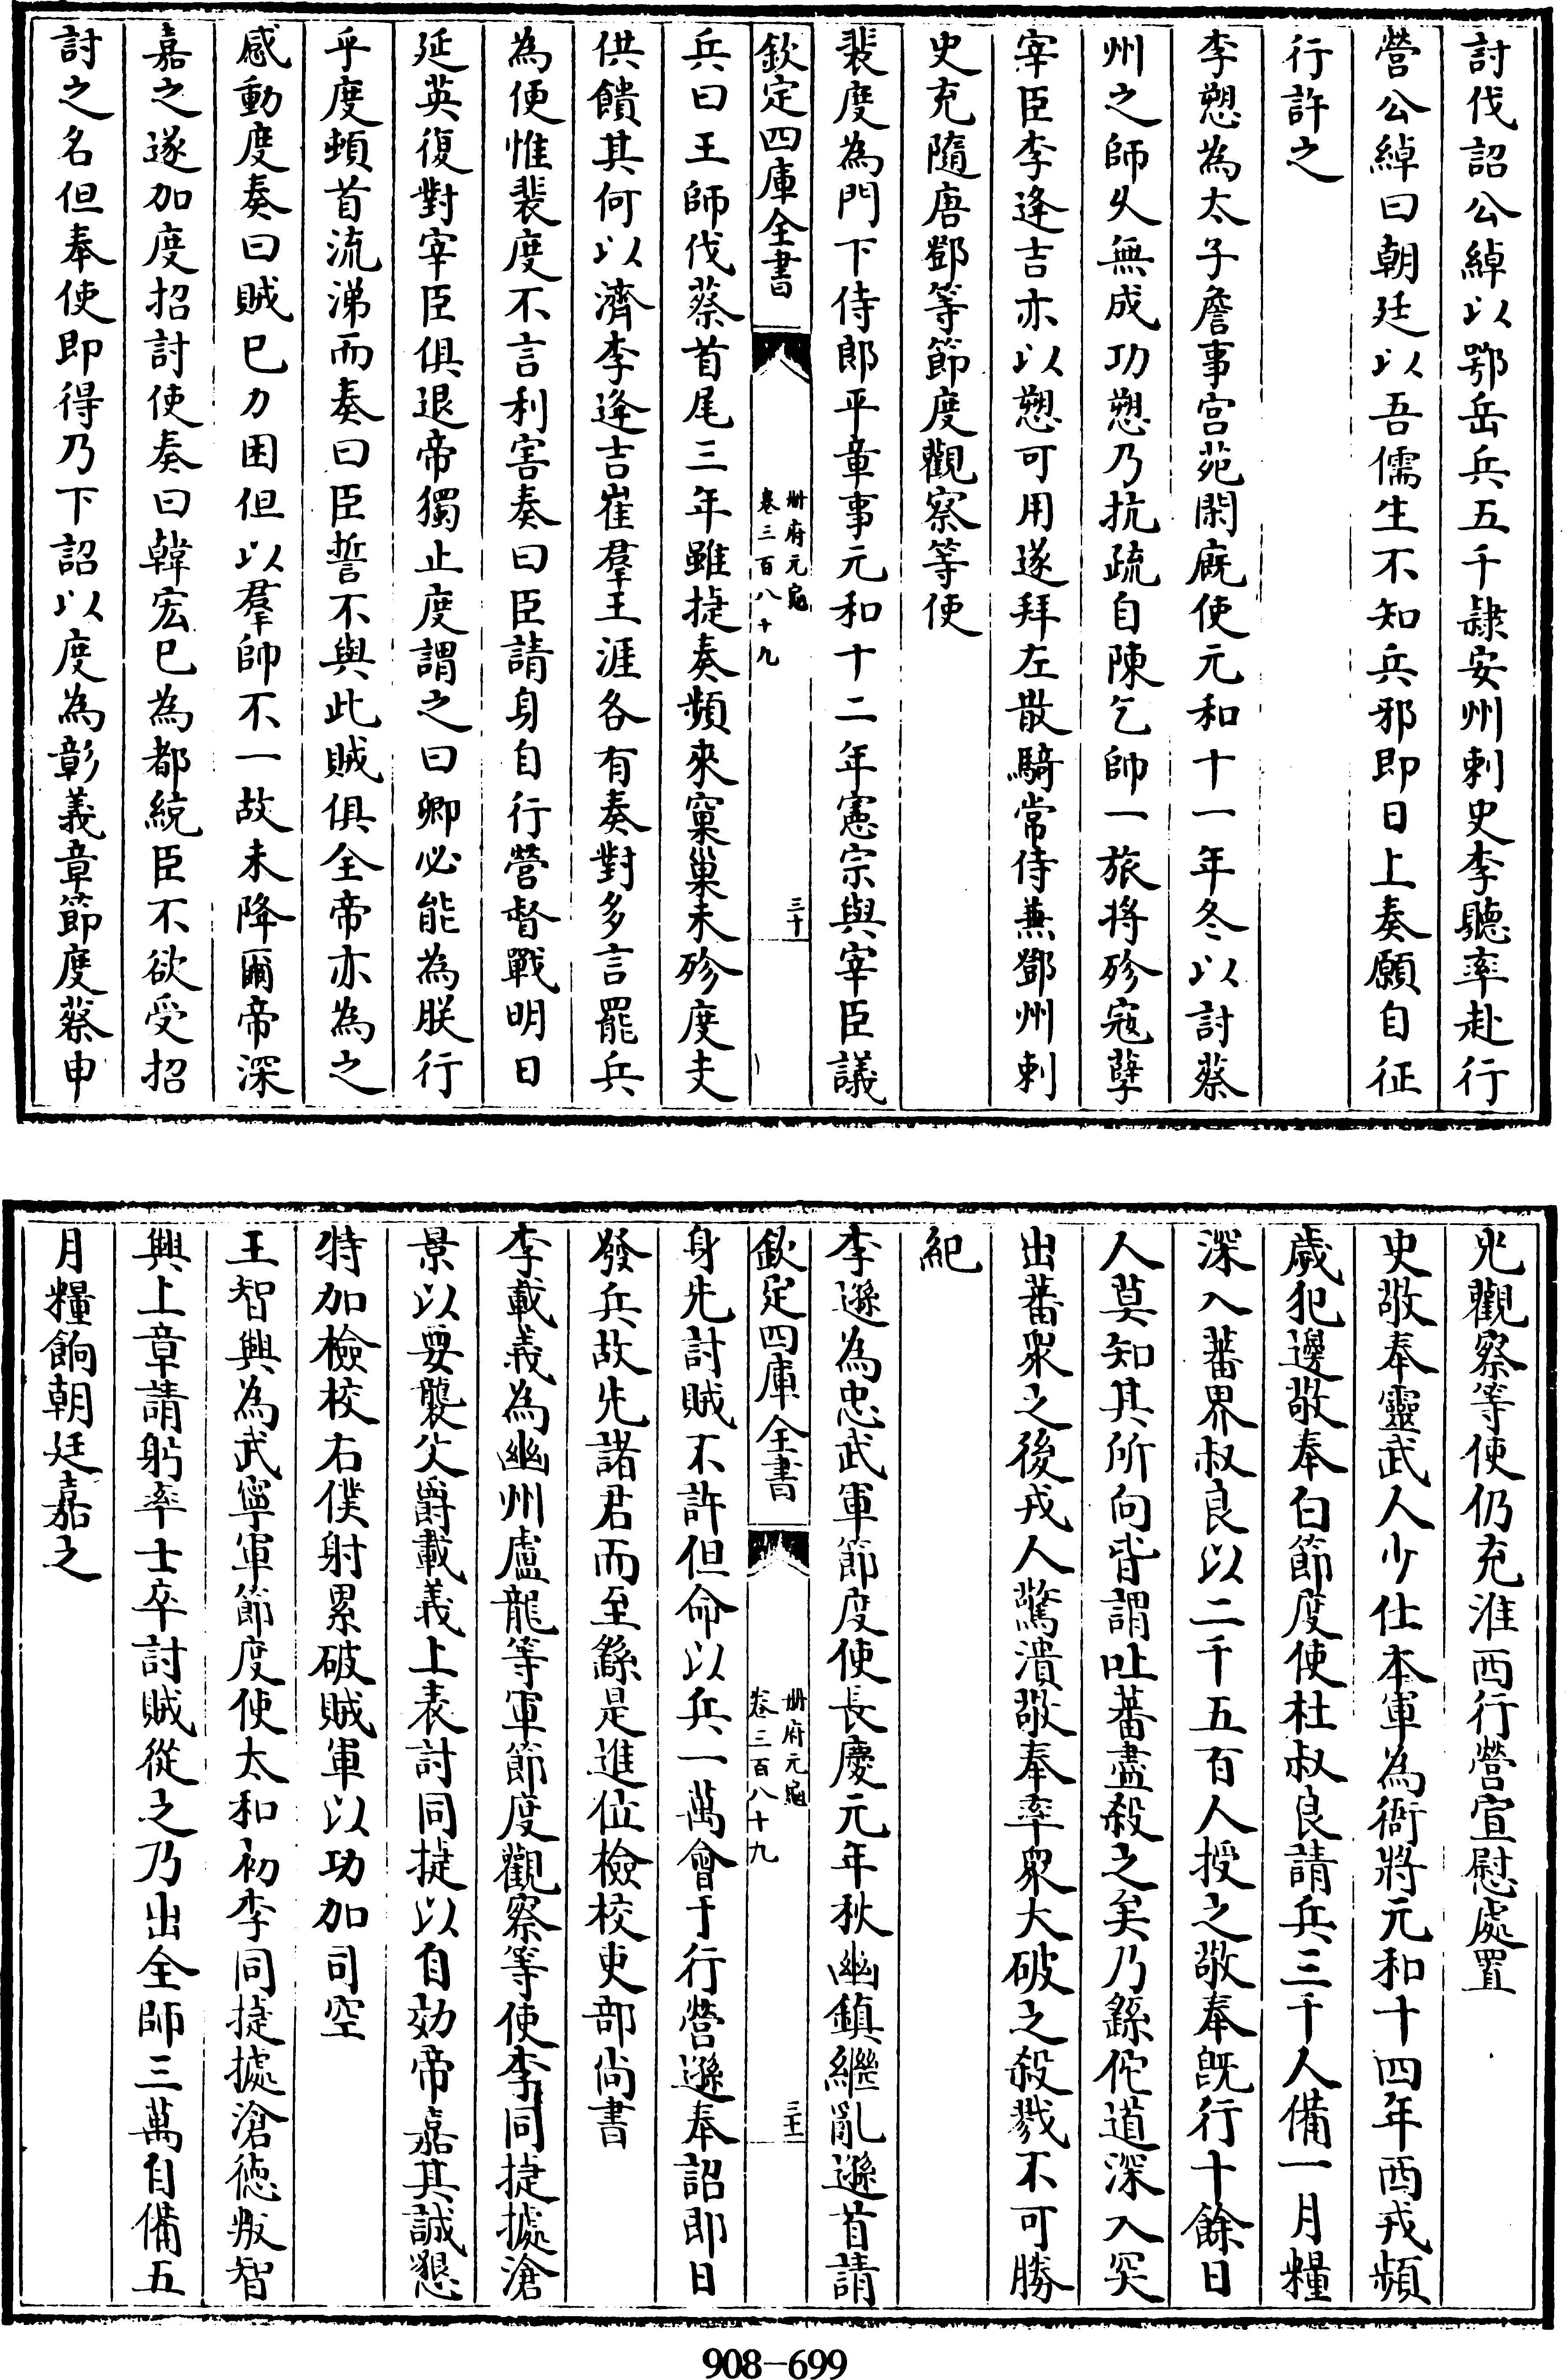 討伐詔公綽以鄂岳兵五千隷安州刺史李聽率赴行
營公綽曰朝廷以吾儒生不知兵邪即日上奏願自征
行許之
李愬為太子詹事宫苑閑廐使元和十一年冬以討蔡
州之師久無成功愬乃抗疏自陳乞師一旅将殄寇孽
宰臣李逢吉亦以愬可用遂拜左散騎常侍兼鄧州刺
史充隨唐鄧等節度觀察等使
裴度為門下侍郎平章事元和十二年憲宗與宰臣議
欽定四庫全書
冊府元龜
卷三百八十九
三十
兵曰王師伐蔡首尾三年雖捷奏頻來窠巢未殄度支
供饋其何以濟李逢吉崔羣王涯各有奏對多言罷兵
為便惟裴度不言利害奏曰臣請身自行營督戰明日
延英復對宰臣俱退帝獨止度謂之曰卿必能為朕行
乎度頓首流涕而奏曰臣誓不與此賊俱全帝亦為之
感動度奏曰賊已力困但以羣帥不一故未降爾帝深
嘉之遂加度招討使奏曰韓宏已為都統臣不欲受招
討之名但奉使即得乃下詔以度為彰義章節度蔡申
光觀察等使仍充淮西行營宣慰處置
史敬奉靈武人少仕本軍為衙將元和十四年酉戎頻
歲犯邊敬奉白節度使杜叔良請兵三千人備一月糧
深入蕃界叔良以二千五百人授之敬奉旣行十餘日
人莫知其所向皆謂吐蕃盡殺之矣乃繇佗道深入突
出蕃衆之後戎人驚潰敬奉率衆大破之殺戮不可勝
紀
李遜為忠武軍節度使長慶元年秋幽鎮繼亂遜首請
欽定四庫全書
冊府元龜
卷三百八十九
三十一
身先討賊不許但命以兵一萬會于行營遜奉詔即日
發兵故先諸君而至繇是進位檢校吏部尚書
李載義為幽州盧龍等軍節度觀察等使李同捷據滄
景以要襲父爵載義上表討同捷以自効帝嘉其誠懇
特加檢校右僕射累破賊軍以功加司空
王智興為武寧軍節度使太和初李同捷據滄德叛智
興上章請躬率士卒討賊從之乃出全師三萬自備五
月糧餉朝廷嘉之
908-699